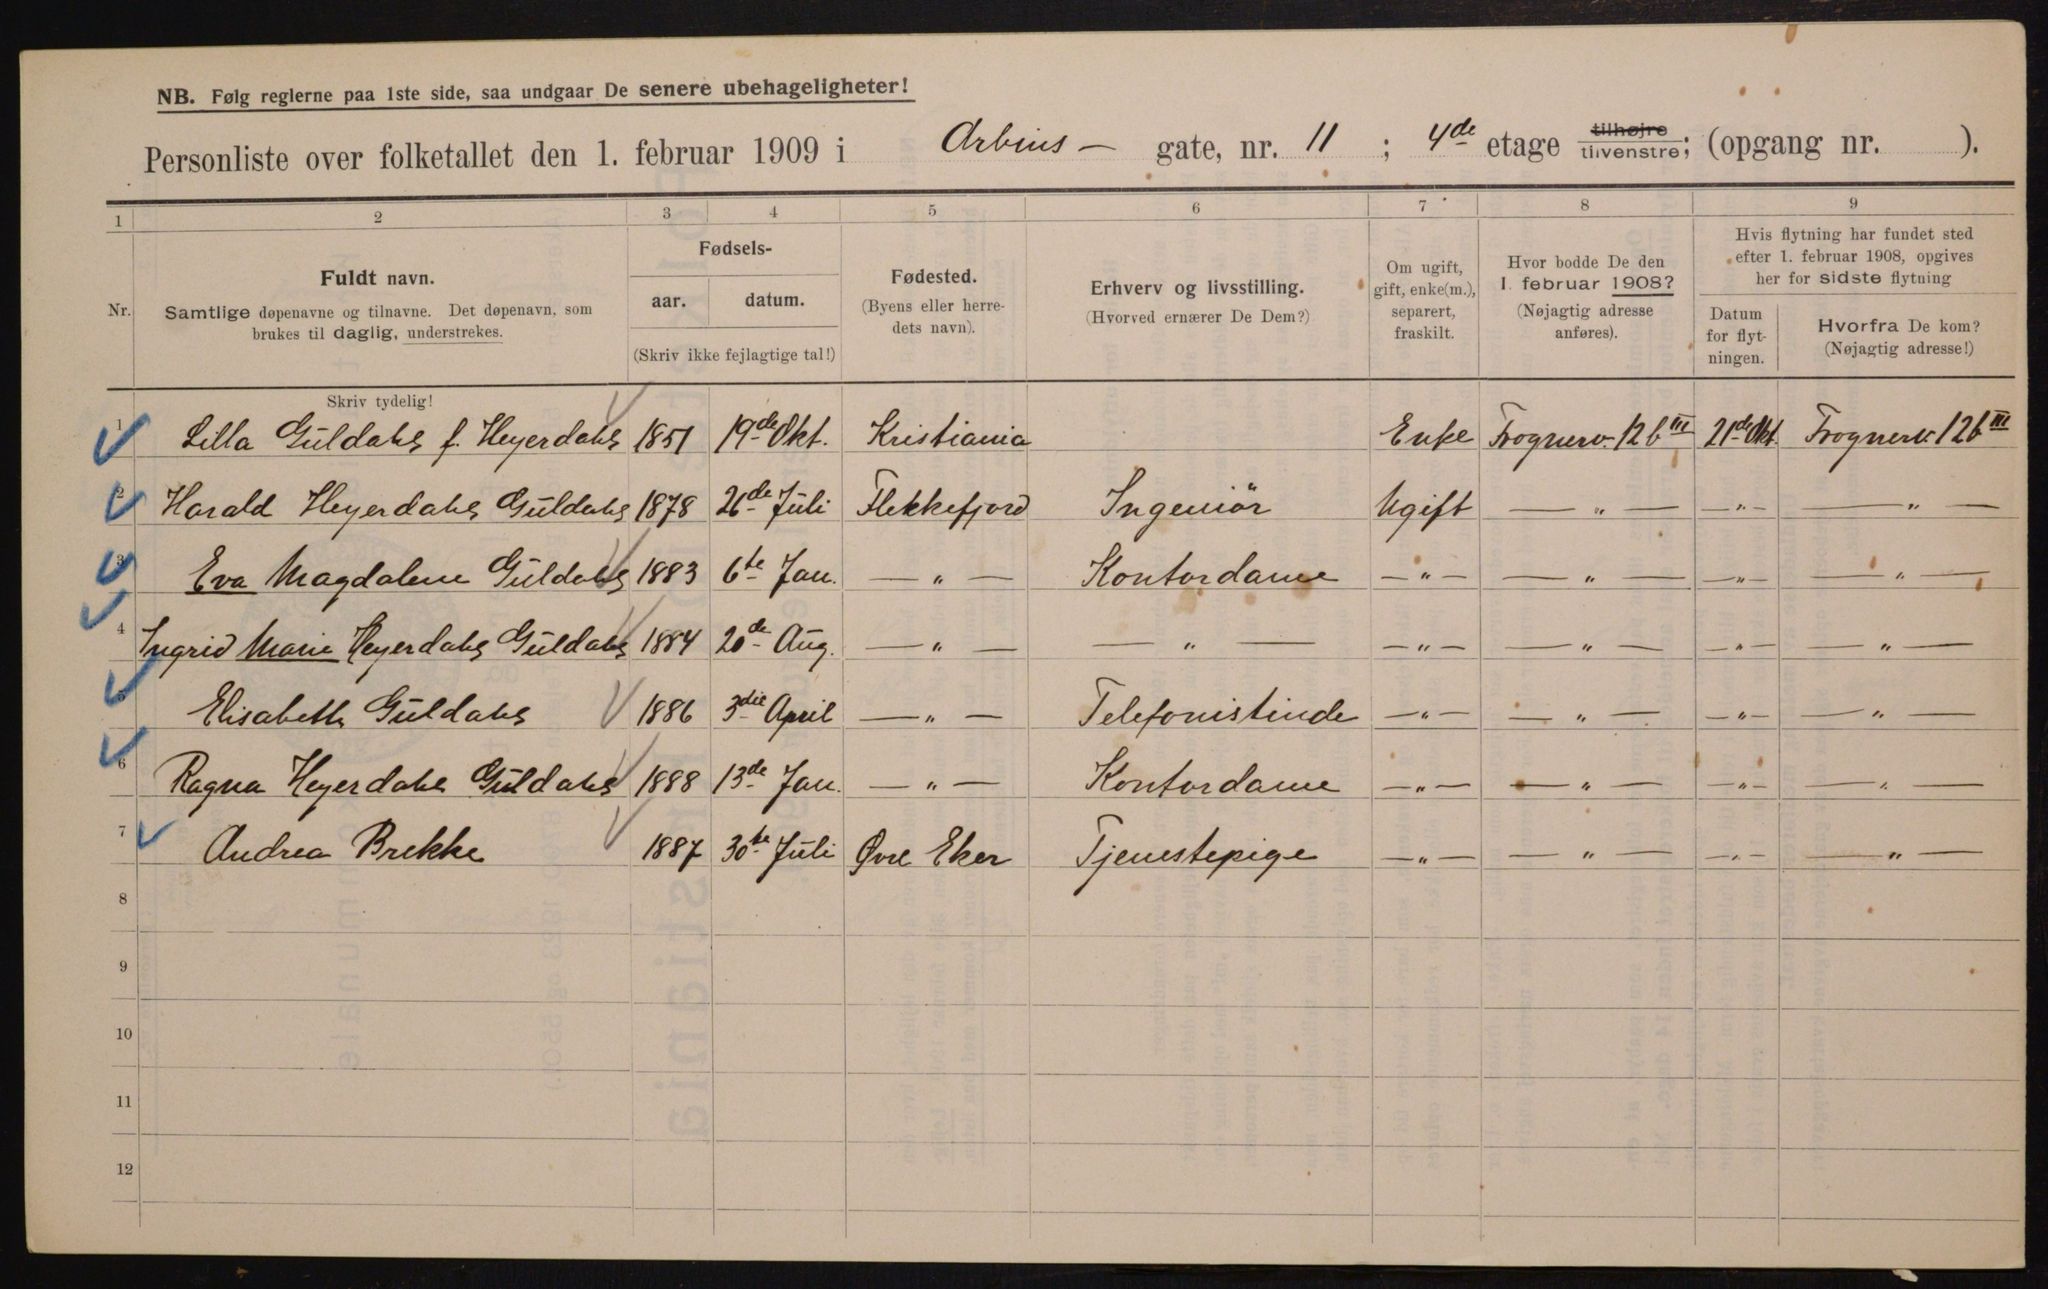 NB. Følg reglerne paa 1ste side, saa undgaar De senere ubehageligheter!
Personliste over folketallet den 1. februar 1909 i Arbins- gate, nr. 11 ; 4de etage tilhøjre tilvenstre; (opgang nr. ).
1 2 3 4 5 6 7 8 9
Nr.
Fuldt navn.
Samtlige døpenavne og tilnavne. Det døpenavn, som
brukes til daglig, understrekes.
Fødsels-
aar. datum.
(Skriv ikke fejlagtige tal!)
Fødested.
(Byens eller herre-
dets navn).
Erhverv og livsstilling.
(Hvorved ernærer De Dem?)
Om ugift,
gift, enke(m.),
separert,
fraskilt.
Hvor bodde De den
1. februar 1908?
(Nøjagtig adresse
anføres).
Hvis flytning har fundet sted
efter 1. februar 1908, opgives
her for sidste flytning
Datum
for flyt-
ningen.
Hvorfra De kom?
(Nøjagtig adresse!)
Skriv tydelig!
1 Lilla Guldahl f. Heyerdahl 1851 19de Okt. Kristiania Enke Frognerv. 12b III 21de Okt. Frognerv. 12b III
2 Harald Heyerdahl Guldahl 1878 26de Juli Flekkefjord Ingeniør Ugift — " — — " — — " —
3 Eva Magdalene Guldahl 1883 6te Jan. — " — Kontordame — " — — " — — " — — " —
4 Ingrid Marie Heyerdahl Guldahl 1884 20de Aug. — " — — " — — " — — " — — " — — " —
5 Elisabeth Guldahl 1886 3die April — " — Telefonistinde — " — — " — — " — — " —
6 Ragna Heyerdahl Guldahl 1888 13de Jan. — " — Kontordame — " — — " — — " — — " —
7 Andrea Brekke 1887 30te Juli Øvre Eker Tjenestepige — " — — " — — " — — " —
8
9
10
11
12